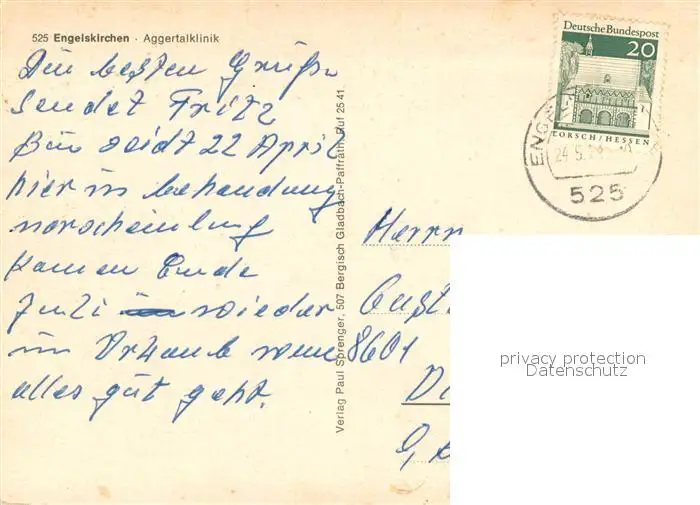 525 Engelskirchen · Aggertalklinik
Die besten Grüße
sendet Fritz
Bin seidt 22 April
hier in behandung
vorscheinlung
kommen Ende
Juli wieder
in Urlaub wenn
alles gut geht.
Verlag Paul Sprenger, 507 Bergisch Gladbach-Paffrath, Ruf 25 41
Deutsche Bundespost
20
LORSCH/HESSEN
24.5.
525
Herrn
8601
privacy protection
Datenschutz